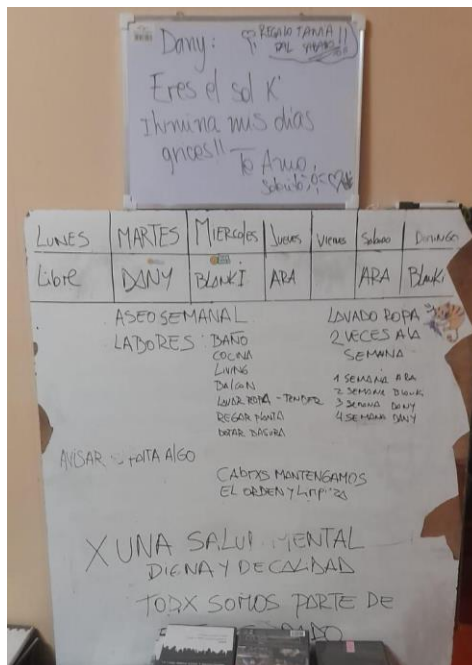 Dany:
REGALO TANIA!!
DEL
Eres el sol K'
Ilumina mis días
grices!!
Te Amo.
LUNES MARTES MIERCOLES Jueves Viernes Sabado DOMINGO
Libre DANY BLANKI ARA ARA Blanki
ASEO SEMANAL
LABORES: BAÑO
COCINA
LIVING
BALCON
LAVAR ROPA - TENDER
REGAR PLANTA
BOTAR BASURA
LAVADO ROPA
2 VECES A LA
SEMANA
1 SEMANA ARA
2 SEMANA BLANKI
3 SEMANA DANY
4 SEMANA DANY
AVISAR FALTA ALGO
CABRXS MANTENGAMOS
EL ORDEN Y LIMPIEZA
X UNA SALUD MENTAL
DIGNA Y DE CALIDAD
TODX SOMOS PARTE DE